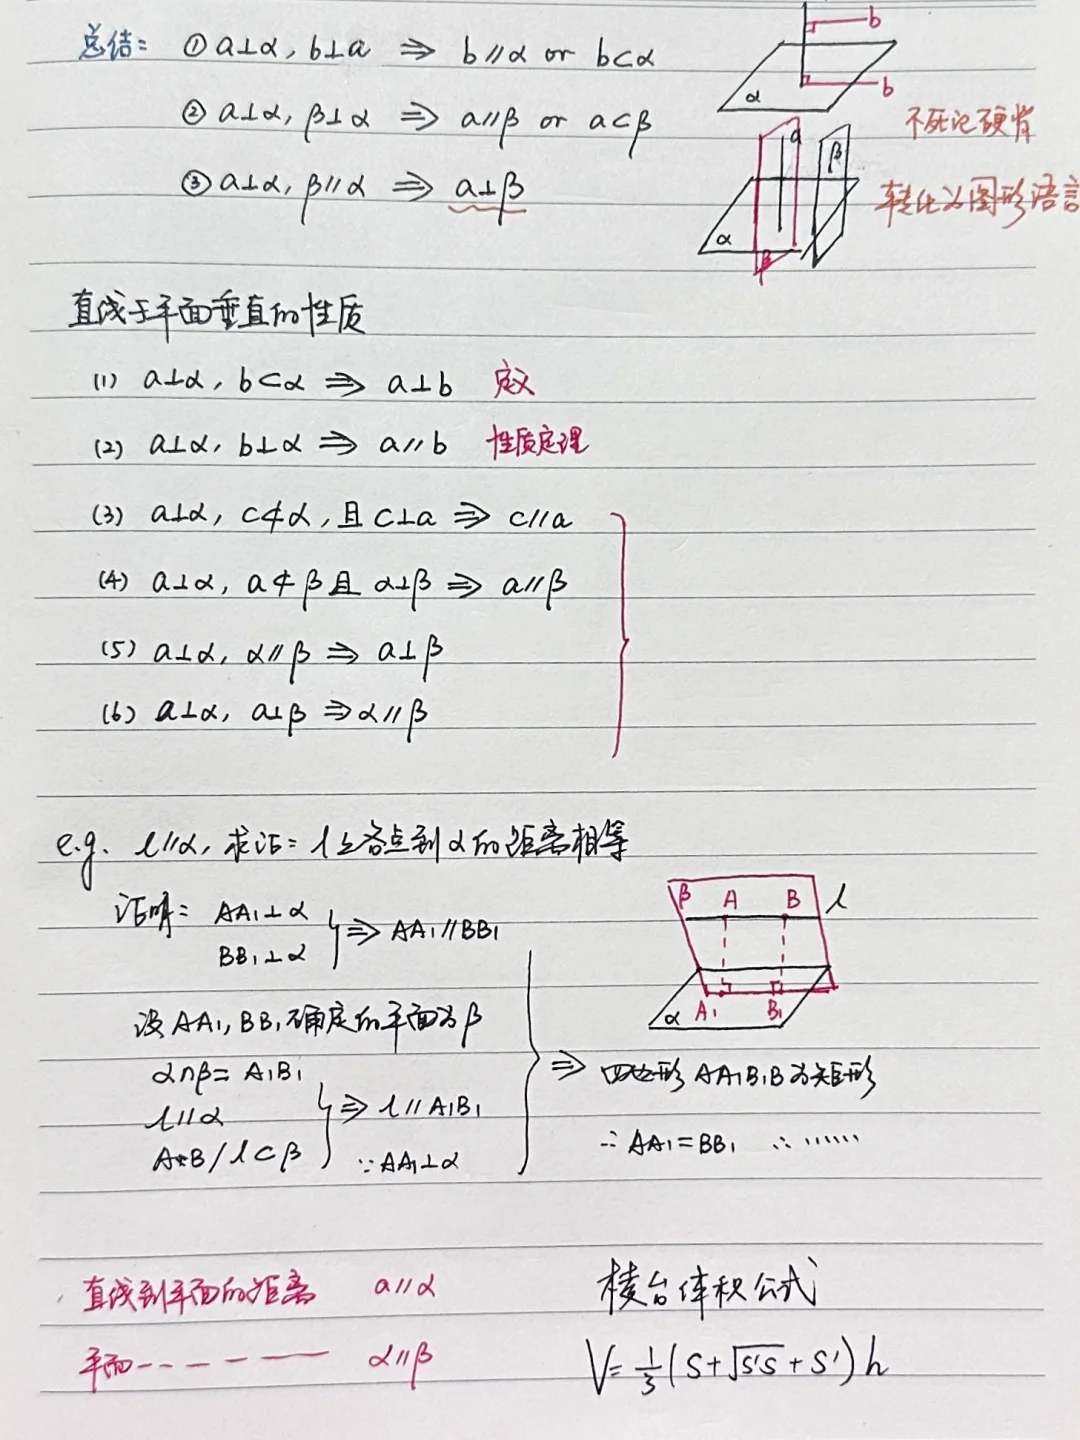 总结: ① a⊥α, b⊥a ⇒ b∥α or b⊂α
② a⊥α, β⊥α ⇒ a∥β or a⊂β
③ a⊥α, β∥α ⇒ a⊥β
b
b
α
不死记硬背
a
β
α
β
转化为图形语言
直线与平面垂直的性质
(1) a⊥α, b⊂α ⇒ a⊥b 定义
(2) a⊥α, b⊥α ⇒ a∥b 性质定理
(3) a⊥α, c⊄α, 且c⊥a ⇒ c∥a
(4) a⊥α, a⊄β且 α⊥β ⇒ a∥β
(5) a⊥α, α∥β ⇒ a⊥β
(6) a⊥α, a⊥β ⇒ α∥β
e.g. l∥α, 求证: l上各点到α的距离相等
证明: AA₁⊥α
BB₁⊥α
⇒ AA₁∥BB₁
设AA₁, BB₁确定的平面为β
α∩β= A₁B₁
l∥α
A*B/l⊂β
⇒ l∥A₁B₁
∵AA₁⊥α
⇒ 四边形 AA₁B₁B为矩形
∴AA₁=BB₁ ∴ ······
β A B l
α A₁ B₁
直线到平面的距离 a∥α
平面----- α∥β
棱台体积公式
V=1/3(S+√S'S+S')h